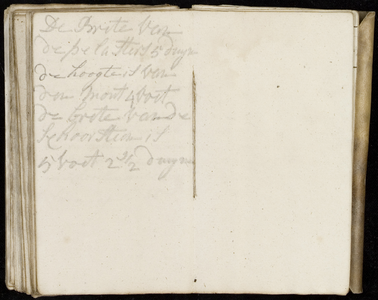 De Brete van
de pelasters 5 duym
de hoogte is van
den mont 4 voet
de brete van de
schoorsteen is
5 voet 2 1/2 duym